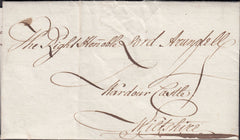 The Right Hon:able Lord Arundell
Wardour Castle
Wiltshire